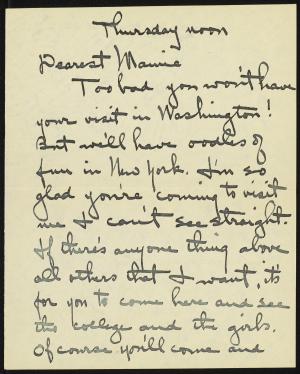 Thursday noon
Dearest Mamie
Too bad you won't have
your visit in Washington!
But we'll have oodles of
fun in New York. I'm so
glad you're coming to visit
me I can't see straight.
If there's anyone thing above
all others that I want, it's
for you to come here and see
the college and the girls.
Of course you'll come and